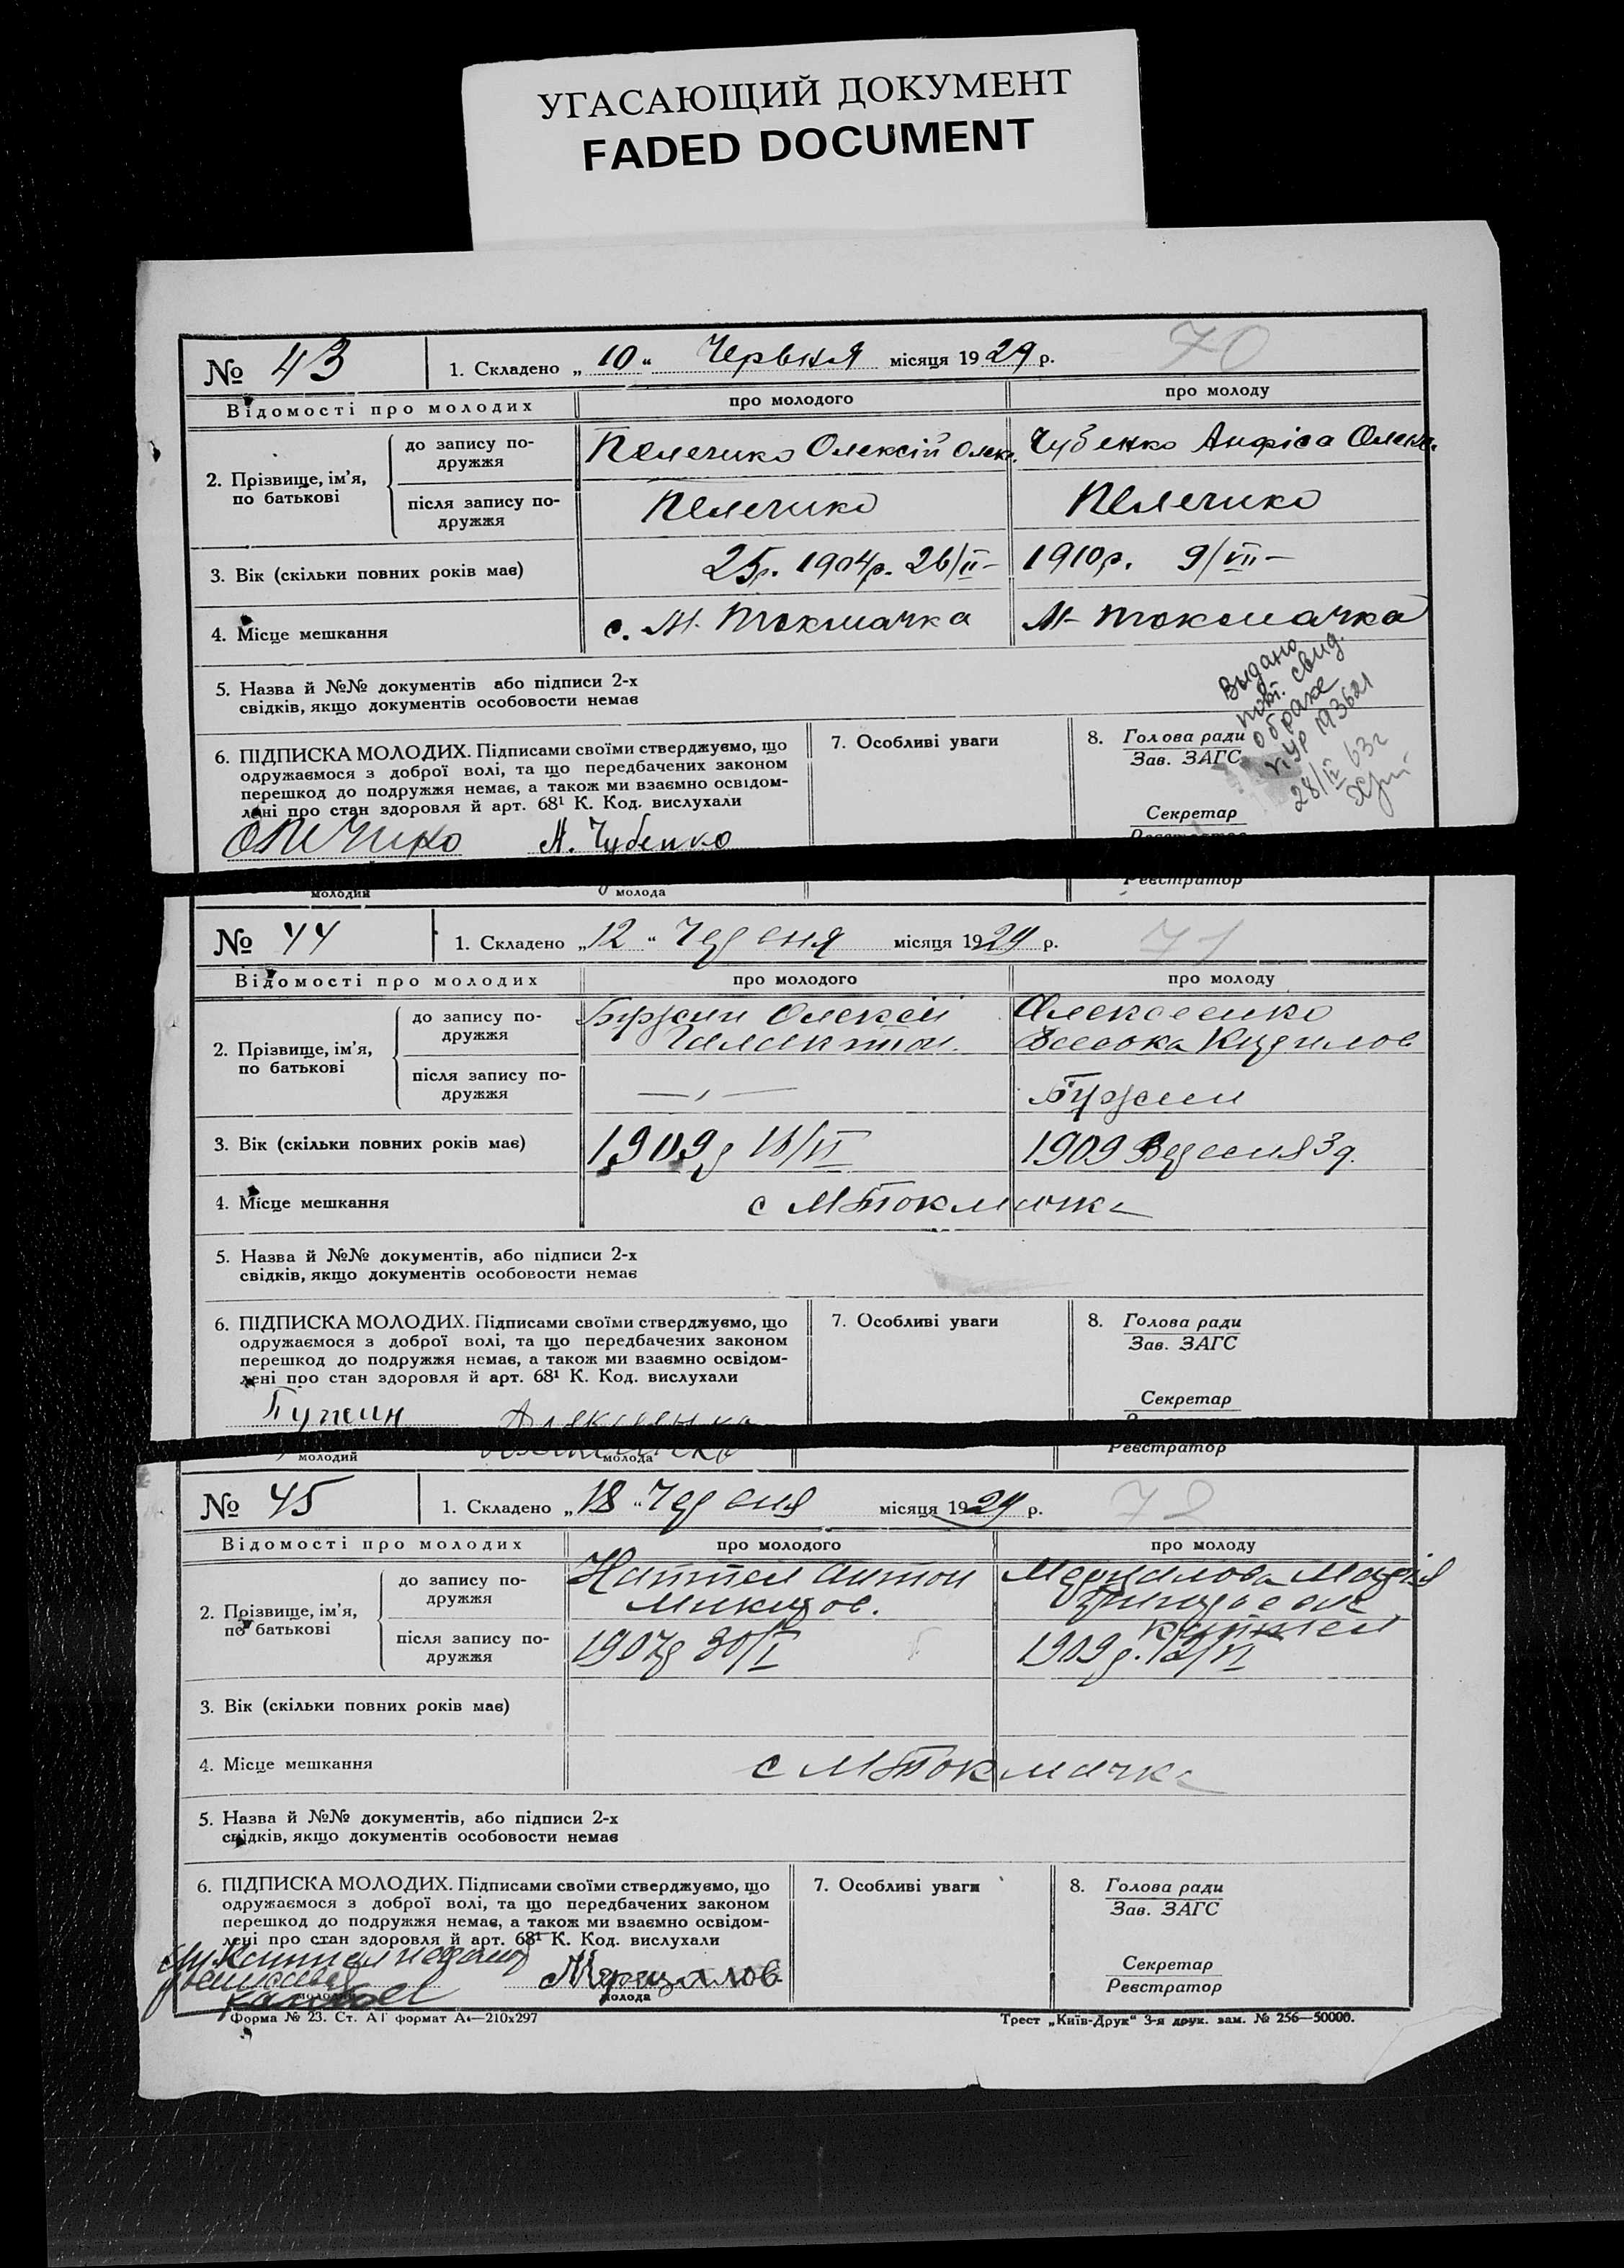 УГАСАЮЩИЙ ДОКУМЕНТ
FADED DOCUMENT
№ 43
1. Складено „10“ Червня місяця 1929 р.
70
Відомості про молодих
про молодого
про молоду
2. Прізвище, ім'я, по батькові
до запису по-
дружжя
Пелечико Олексій Олек.
Чубенко Анфіса Олек.
після запису по-
дружжя
Пелечико
Пелечико
3. Вік (скільки повних років має)
25р. 1904р. 26/II –
1910р. 9/VII –
4. Місце мешкання
с. М. Токмачка
М- Токмачка
5. Назва й №№ документів або підписи 2-х
свідків, якщо документів особовости немає
Выдано
повт. свид.
о браке
УР 193621
28/IV 63г
6. ПІДПИСКА МОЛОДИХ. Підписами своїми стверджуємо, що
одружаємося з доброї волі, та що передбачених законом
перешкод до подружжя немає, а також ми взаємно освідом-
лені про стан здоровля й арт. 68¹ К. Код. вислухали
7. Особливі уваги
8. Голова ради
Зав. ЗАГС
Секретар
А. Чубенко
молодий
молода
Реєстратор
№ 44
1. Складено „12“ Червня місяця 1929 р.
71
Відомості про молодих
про молодого
про молоду
2. Прізвище, ім'я, по батькові
до запису по-
дружжя
Олексій
Алексеенко
Кирилов
після запису по-
дружжя
— „ —
3. Вік (скільки повних років має)
1909р 16/VI
1909 Вересня 3д.
4. Місце мешкання
с МТокмачка
5. Назва й №№ документів, або підписи 2-х
свідків, якщо документів особовости немає
6. ПІДПИСКА МОЛОДИХ. Підписами своїми стверджуємо, що
одружаємося з доброї волі, та що передбачених законом
перешкод до подружжя немає, а також ми взаємно освідом-
лені про стан здоровля й арт. 68¹ К. Код. вислухали
7. Особливі уваги
8. Голова ради
Зав. ЗАГС
Секретар
молодий
молода
Реєстратор
№ 45
1. Складено „18“ Червня місяця 1929 р.
72
Відомості про молодих
про молодого
про молоду
2. Прізвище, ім'я, по батькові
до запису по-
дружжя
Антон
Мерцалова Марія
після запису по-
дружжя
1907р 30/I
1909р. 12/VI
3. Вік (скільки повних років має)
4. Місце мешкання
с МТокмачка
5. Назва й №№ документів, або підписи 2-х
свідків, якщо документів особовости немає
6. ПІДПИСКА МОЛОДИХ. Підписами своїми стверджуємо, що
одружаємося з доброї волі, та що передбачених законом
перешкод до подружжя немає, а також ми взаємно освідом-
лені про стан здоровля й арт. 68¹ К. Код. вислухали
7. Особливі уваги
8. Голова ради
Зав. ЗАГС
Секретар
Реєстратор
Мерцалов
молодий
молода
Форма № 23. Ст. АІ формат А₄—210х297
Трест „Київ-Друк“ 3-я друк. зам. № 256—50000.